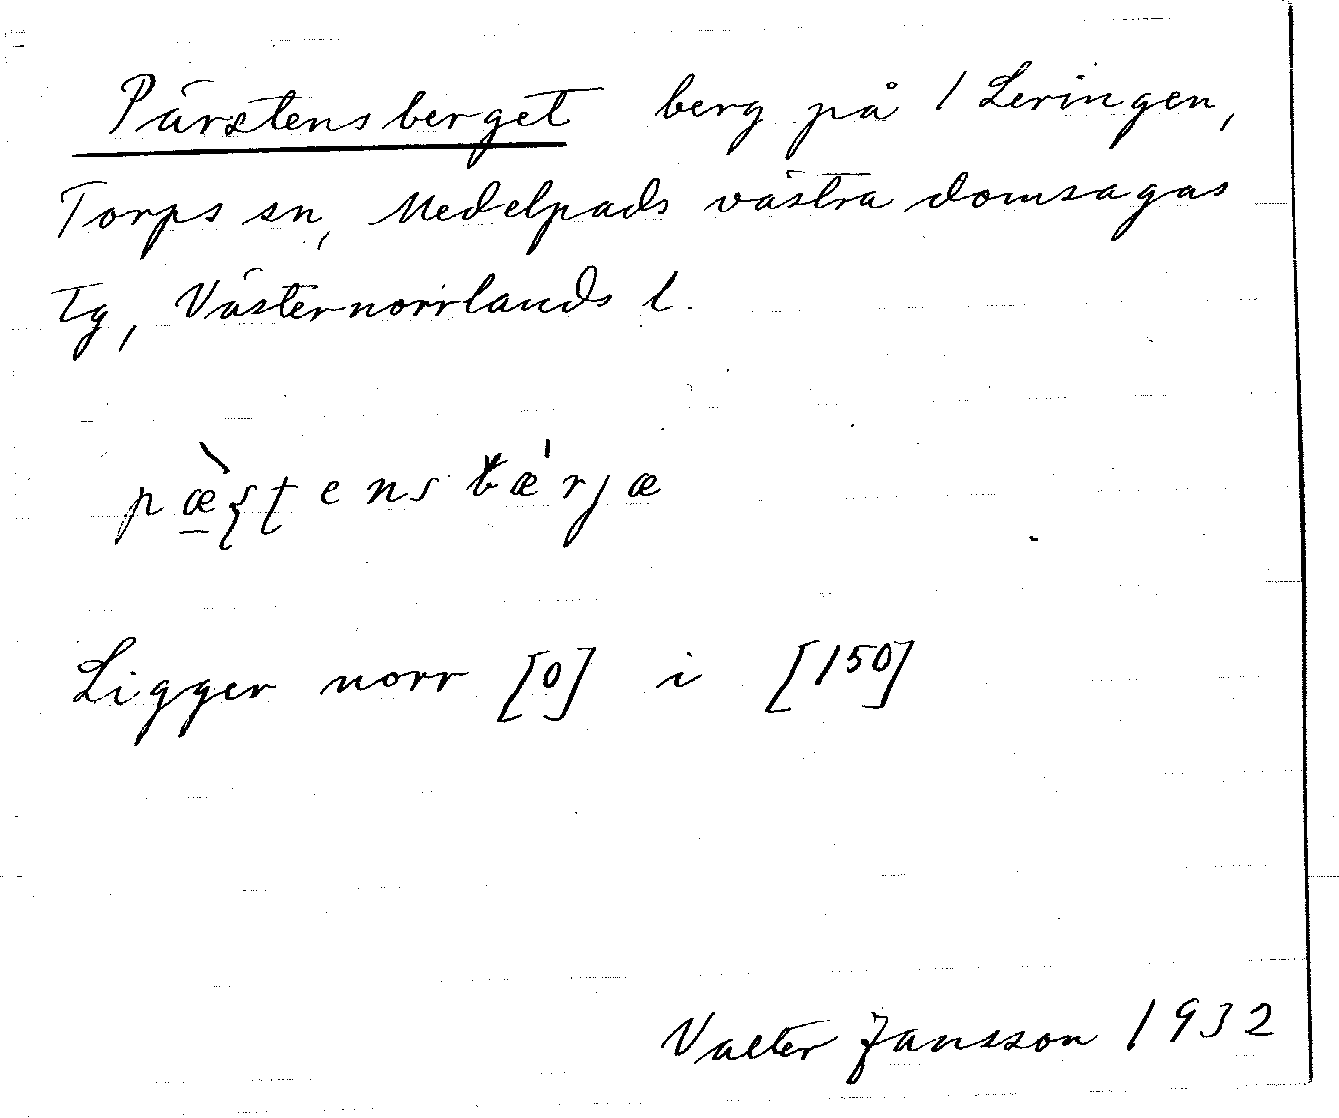 Pärstensberget berg på 1 Leringen,
Torps sn, Medelpads västra domsagas
tg, Västernorrlands l.
pæ̀ʂʈensbǽrjæ
Ligger norr [0] i [150]
Valter Jansson 1932